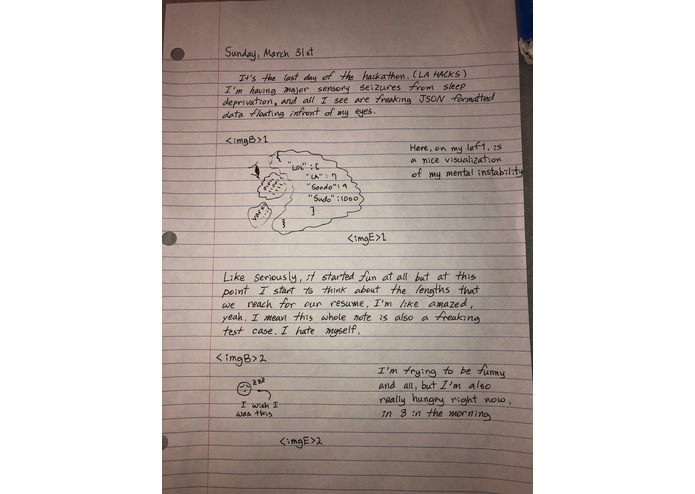 Sunday, March 31st
It's the last day of the hackathon. (LA HACKS)
I'm having major sensory seizures from sleep
deprivation, and all I see are freaking JSON formatted
data floating infront of my eyes.
<imgB>1
{
"LOL" : [
"LA" : 7
"Soodo" : 9
"Sudo" : 1000
]
}
<imgE>1
Here, on my left, is
a nice visualization
of my mental instability
Like seriously, it started fun at all but at this
point I start to think about the lengths that
we reach for our resume. I'm like amazed,
yeah. I mean this whole note is also a freaking
test case. I hate myself.
<imgB>2
zzz
I wish I
was this
<imgE>2
I'm trying to be funny
and all, but I'm also
really hungry right now,
in 3 in the morning